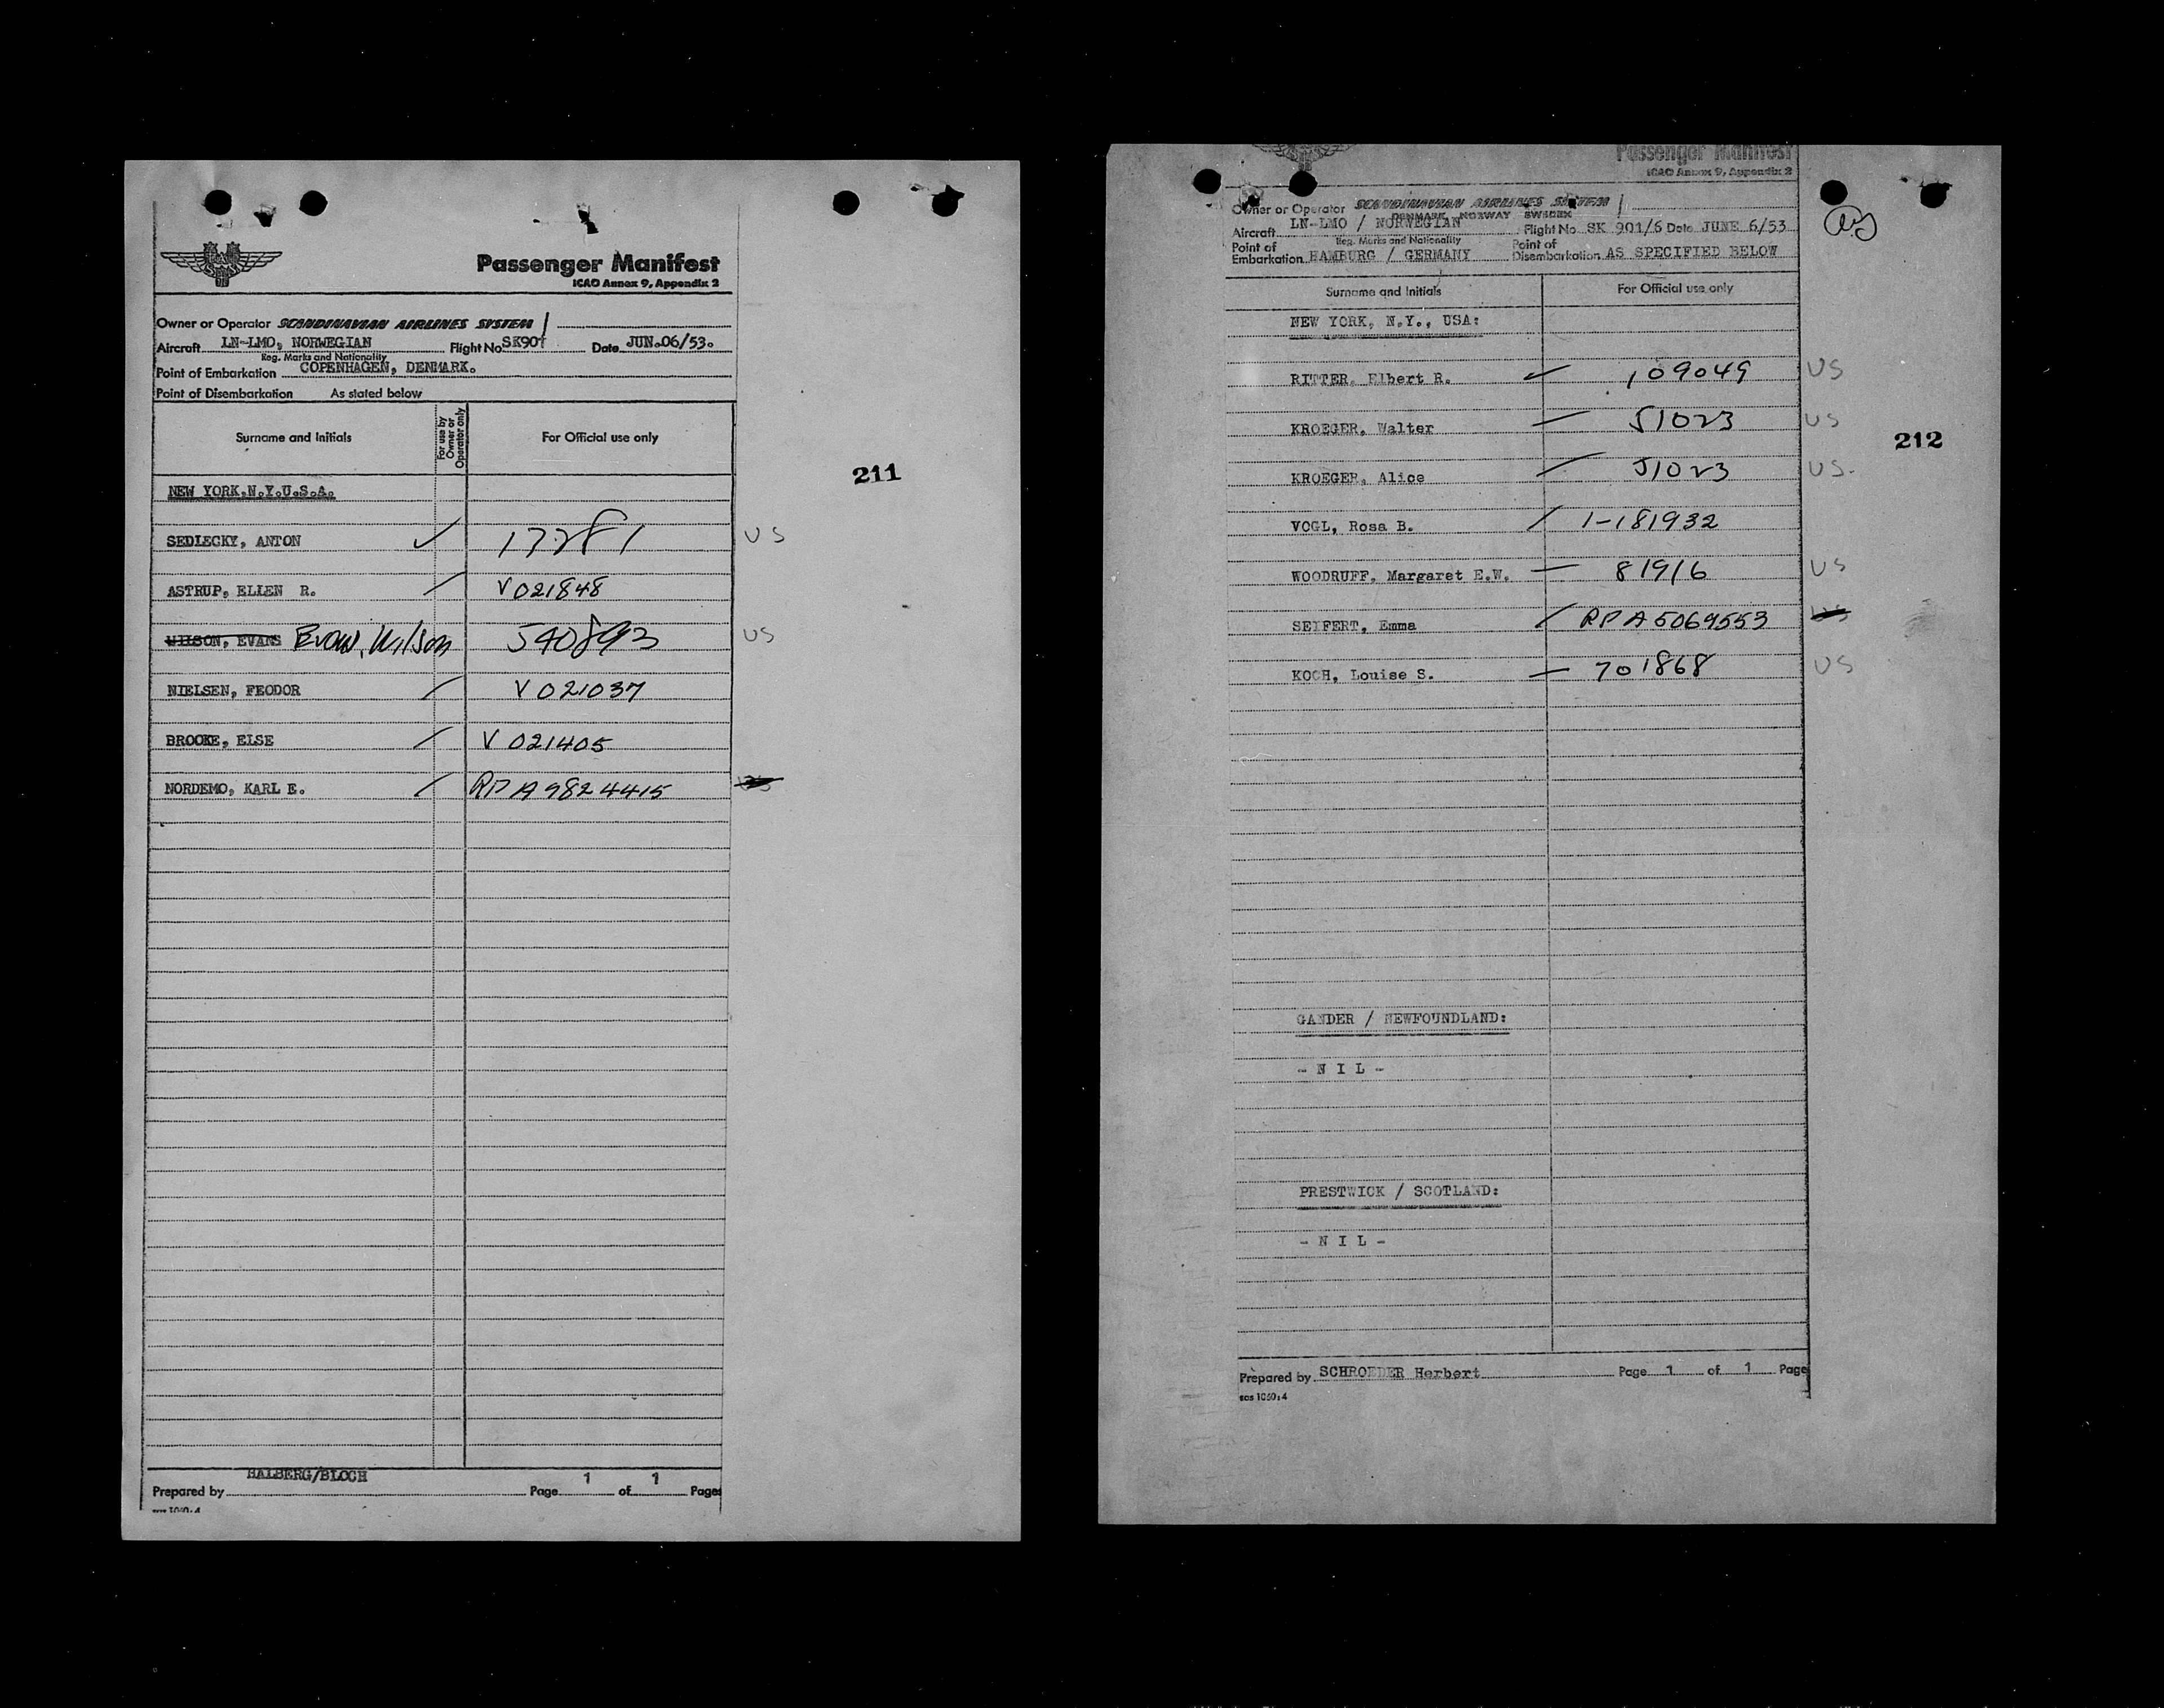 Passenger Manifest
ICAO Annex 9, Appendix 2
Owner or Operator SCANDINAVIAN AIRLINES SYSTEM
Aircraft LN-LMO, NORWEGIAN Flight No SK901 Date JUN.06/53.
Reg. Marks and Nationality
Point of Embarkation COPENHAGEN, DENMARK.
Point of Disembarkation As stated below
Surname and Initials For use by Owner or Operator only For Official use only
211
NEW YORK.N.Y.U.S.A.
SEDLECKY, ANTON 17281 US
ASTRUP, ELLEN R. V021848
WILSON, EVANS Evans, Wilson 540893 US
NIELSEN, FEODOR V 021037
BROOKE, ELSE V 021405
NORDEMO, KARL E. RP A9824415 US
HALBERG/BLOCH
Prepared by Page 1 of 1 Pages
Passenger Manifest
ICAO Annex 9, Appendix 2
Owner or Operator SCANDINAVIAN AIRLINES SYSTEM
DENMARK NORWAY SWEDEN
Aircraft LN-LMO / NORWEGIAN Flight No SK 901/6 Date JUNE 6/53
Reg. Marks and Nationality
Point of Embarkation HAMBURG / GERMANY Point of Disembarkation AS SPECIFIED BELOW
Surname and Initials For Official use only
NEW YORK, N.Y., USA:
RITTER, Elbert R. 109049 US
KROEGER, Walter 51023 US
212
KROEGER, Alice 51023 US-
VOGL, Rosa B. 1-181932
WOODRUFF, Margaret E.W. 81916 US
SEIFERT, Emma RP A5069553 US
KOCH, Louise S. 701868 US
GANDER / NEWFOUNDLAND:
- N I L -
PRESTWICK / SCOTLAND:
- N I L -
Prepared by SCHROEDER Herbert Page 1 of 1 Page
sas 1060:4